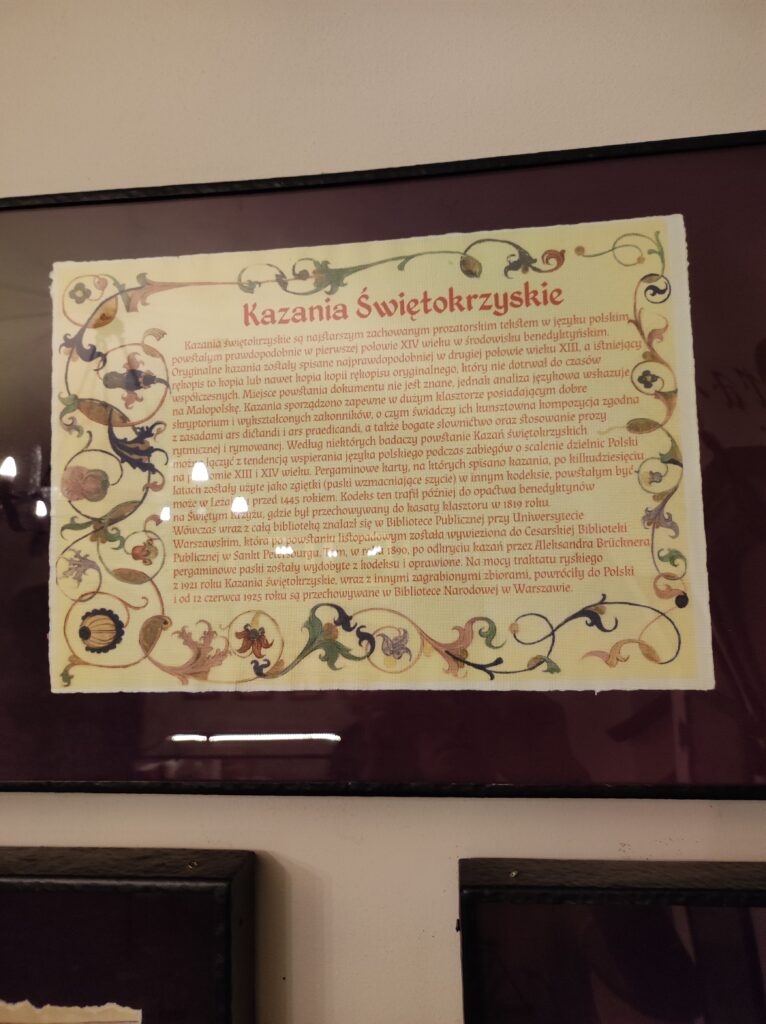 Kazania Świętokrzyskie
Kazania świętokrzyskie są najstarszym zachowanym prozatorskim tekstem w języku polskim,
powstałym prawdopodobnie w pierwszej połowie XIV wieku w środowisku benedyktyńskim.
Oryginalne kazania zostały spisane najprawdopodobniej w drugiej połowie wieku XIII, a istniejący
rękopis to kopia lub nawet kopia kopii rękopisu oryginalnego, który nie dotrwał do czasów
współczesnych. Miejsce powstania dokumentu nie jest znane, jednak analiza językowa wskazuje
na Małopolskę. Kazania sporządzono zapewne w dużym klasztorze posiadającym dobre
skryptorium i wykształconych zakonników, o czym świadczy ich kunsztowna kompozycja zgodna
z zasadami ars dictandi i ars praedicandi, a także bogate słownictwo oraz stosowanie prozy
rytmicznej i rymowanej. Według niektórych badaczy powstanie Kazań świętokrzyskich
można łączyć z tendencją wspierania języka polskiego podczas zabiegów o scalenie dzielnic Polski
na przełomie XIII i XIV wieku. Pergaminowe karty, na których spisano kazania, po kilkudziesięciu
latach zostały użyte jako zgiętki (paski wzmacniające szycie) w innym kodeksie, powstałym być
może w Leżajsku przed 1445 rokiem. Kodeks ten trafił później do opactwa benedyktynów
na Świętym Krzyżu, gdzie był przechowywany do kasaty klasztoru w 1819 roku.
Wówczas wraz z całą biblioteką znalazł się w Bibliotece Publicznej przy Uniwersytecie
Warszawskim, która po powstaniu listopadowym została wywieziona do Cesarskiej Biblioteki
Publicznej w Sankt Petersburgu. Tam, w roku 1890, po odkryciu kazań przez Aleksandra Brücknera
pergaminowe paski zostały wydobyte z kodeksu i oprawione. Na mocy traktatu ryskiego
z 1921 roku Kazania świętokrzyskie, wraz z innymi zagrabionymi zbiorami, powróciły do Polski
i od 12 czerwca 1925 roku są przechowywane w Bibliotece Narodowej w Warszawie.